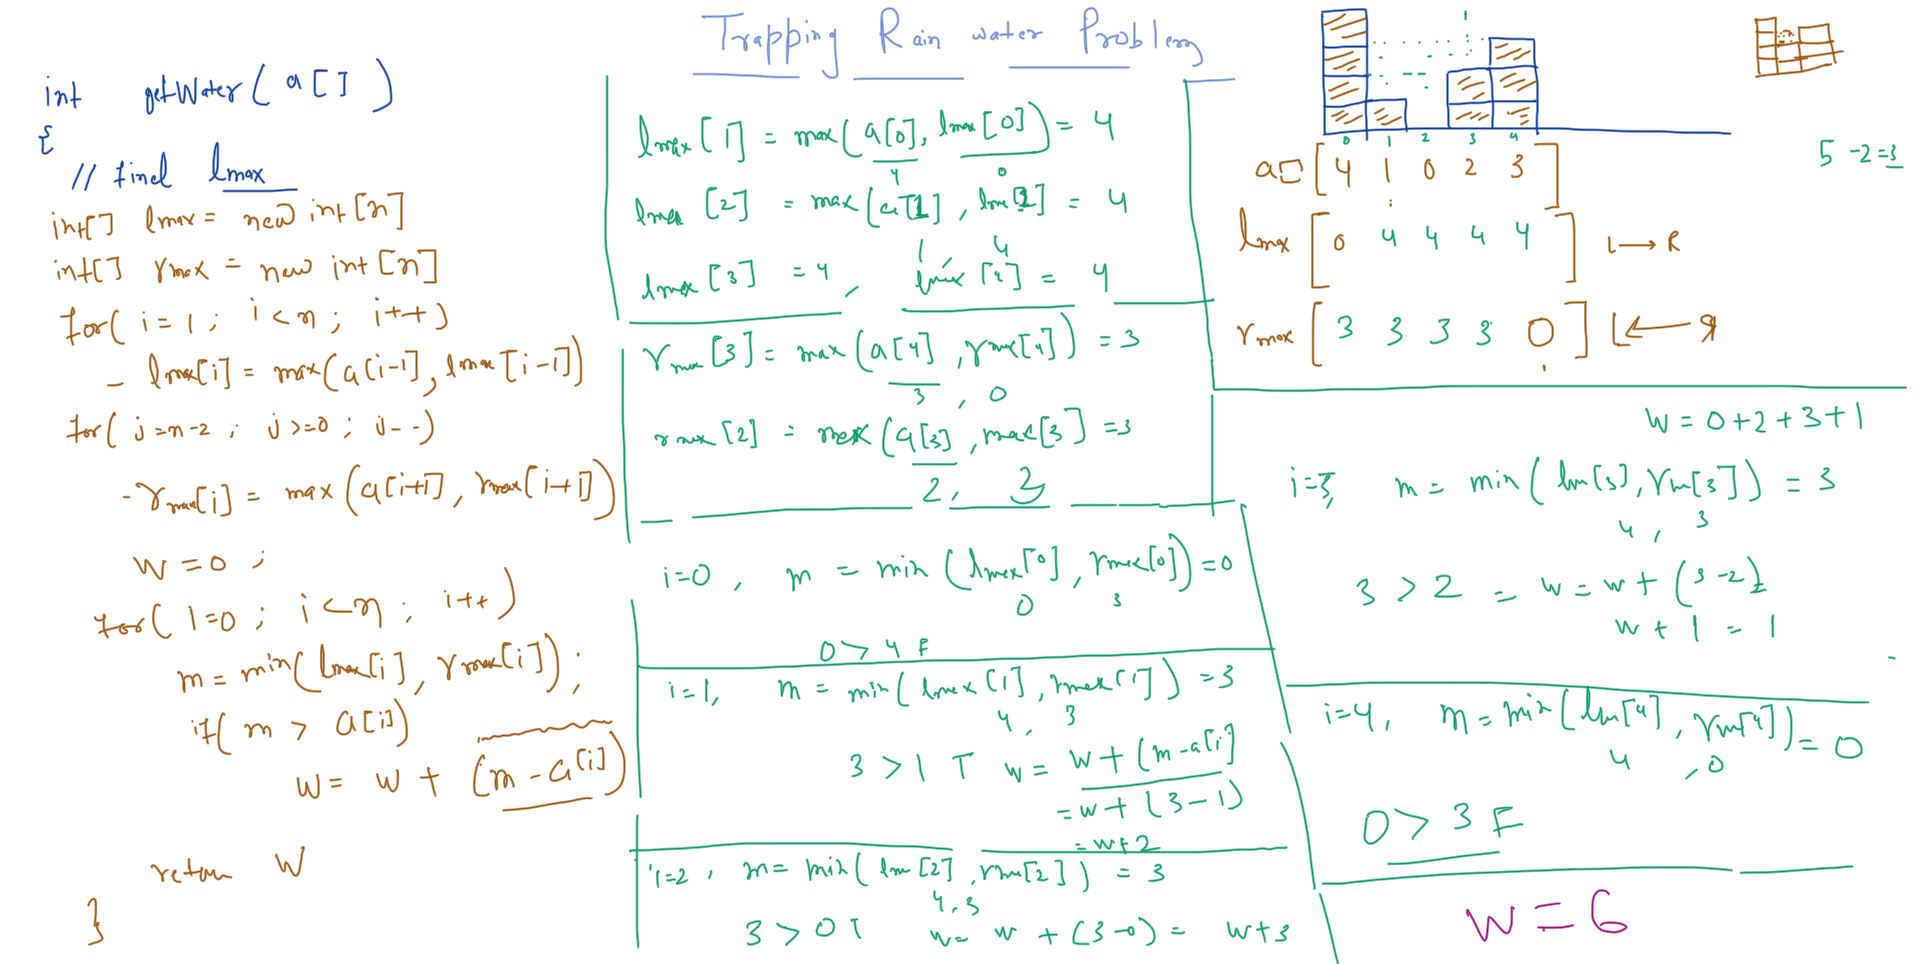 Trapping Rain water Problem
int getWater( a[] )
{
// find lmax
int[] lmax = new int[n]
int[] rmax = new int[n]
for( i=1; i<n; i++)
- lmax[i] = max(a[i-1], lmax[i-1])
for( j=n-2; j>=0; j--)
- rmax[i] = max(a[i+1], rmax[i+1])
W=0;
for( i=0; i<n; i++)
m = min( lmax[i], rmax[i]);
if( m > a[i])
W = W + (m-a[i])
return W
}
lmax[1] = max(a[0], lmax[0]) = 4
4 0
lmax[2] = max(a[1], lmax[1]) = 4
1, 4
lmax[3] = 4, lmax[4] = 4
rmax[3] = max(a[4], rmax[4]) = 3
3, 0
rmax[2] = max(a[3], max[3]) = 3
2, 3
i=0, m = min(lmax[0], rmax[0]) = 0
0 3
0>4 F
i=1, m = min(lmax[1], rmax[1]) = 3
4, 3
3>1 T w = w+(m-a[i]
= w+(3-1)
= w+2
i=2, m = min(lm[2], rm[2]) = 3
4, 3
3>0 T w = w+(3-0) = w+3
0 1 2 3 4
a[] [4 1 0 2 3]
5-2=3
lmax [0 4 4 4 4] L→R
rmax [3 3 3 3 0] L←R
W = 0+2+3+1
i=3, m = min(lm[3], rm[3]) = 3
4, 3
3>2 = w = w+(3-2)
w+1 = 1
i=4, m = min(lm[4], rm[4]) = 0
4, 0
0>3 F
W=6